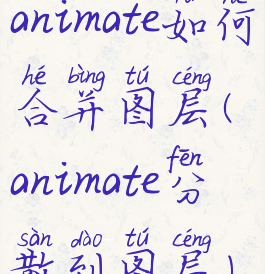 animate如何
hé bìng tú céng
合并图层(
fēn
animate分
sàn dào tú céng
散到图层)